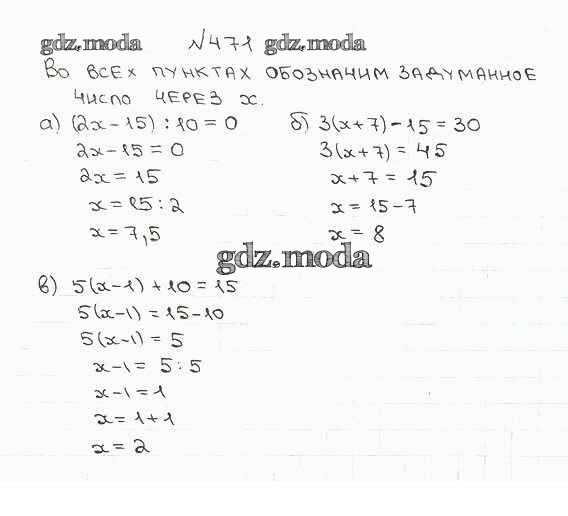 gdz.moda №471 gdz.moda
Во всех пунктах обозначим задуманное
число через x.
а) (2x-15):10=0
2x-15=0
2x=15
x=15:2
x=7,5
б) 3(x+7)-15=30
3(x+7)=45
x+7=15
x=15-7
x=8
gdz.moda
в) 5(x-1)+10=15
5(x-1)=15-10
5(x-1)=5
x-1=5:5
x-1=1
x=1+1
x=2